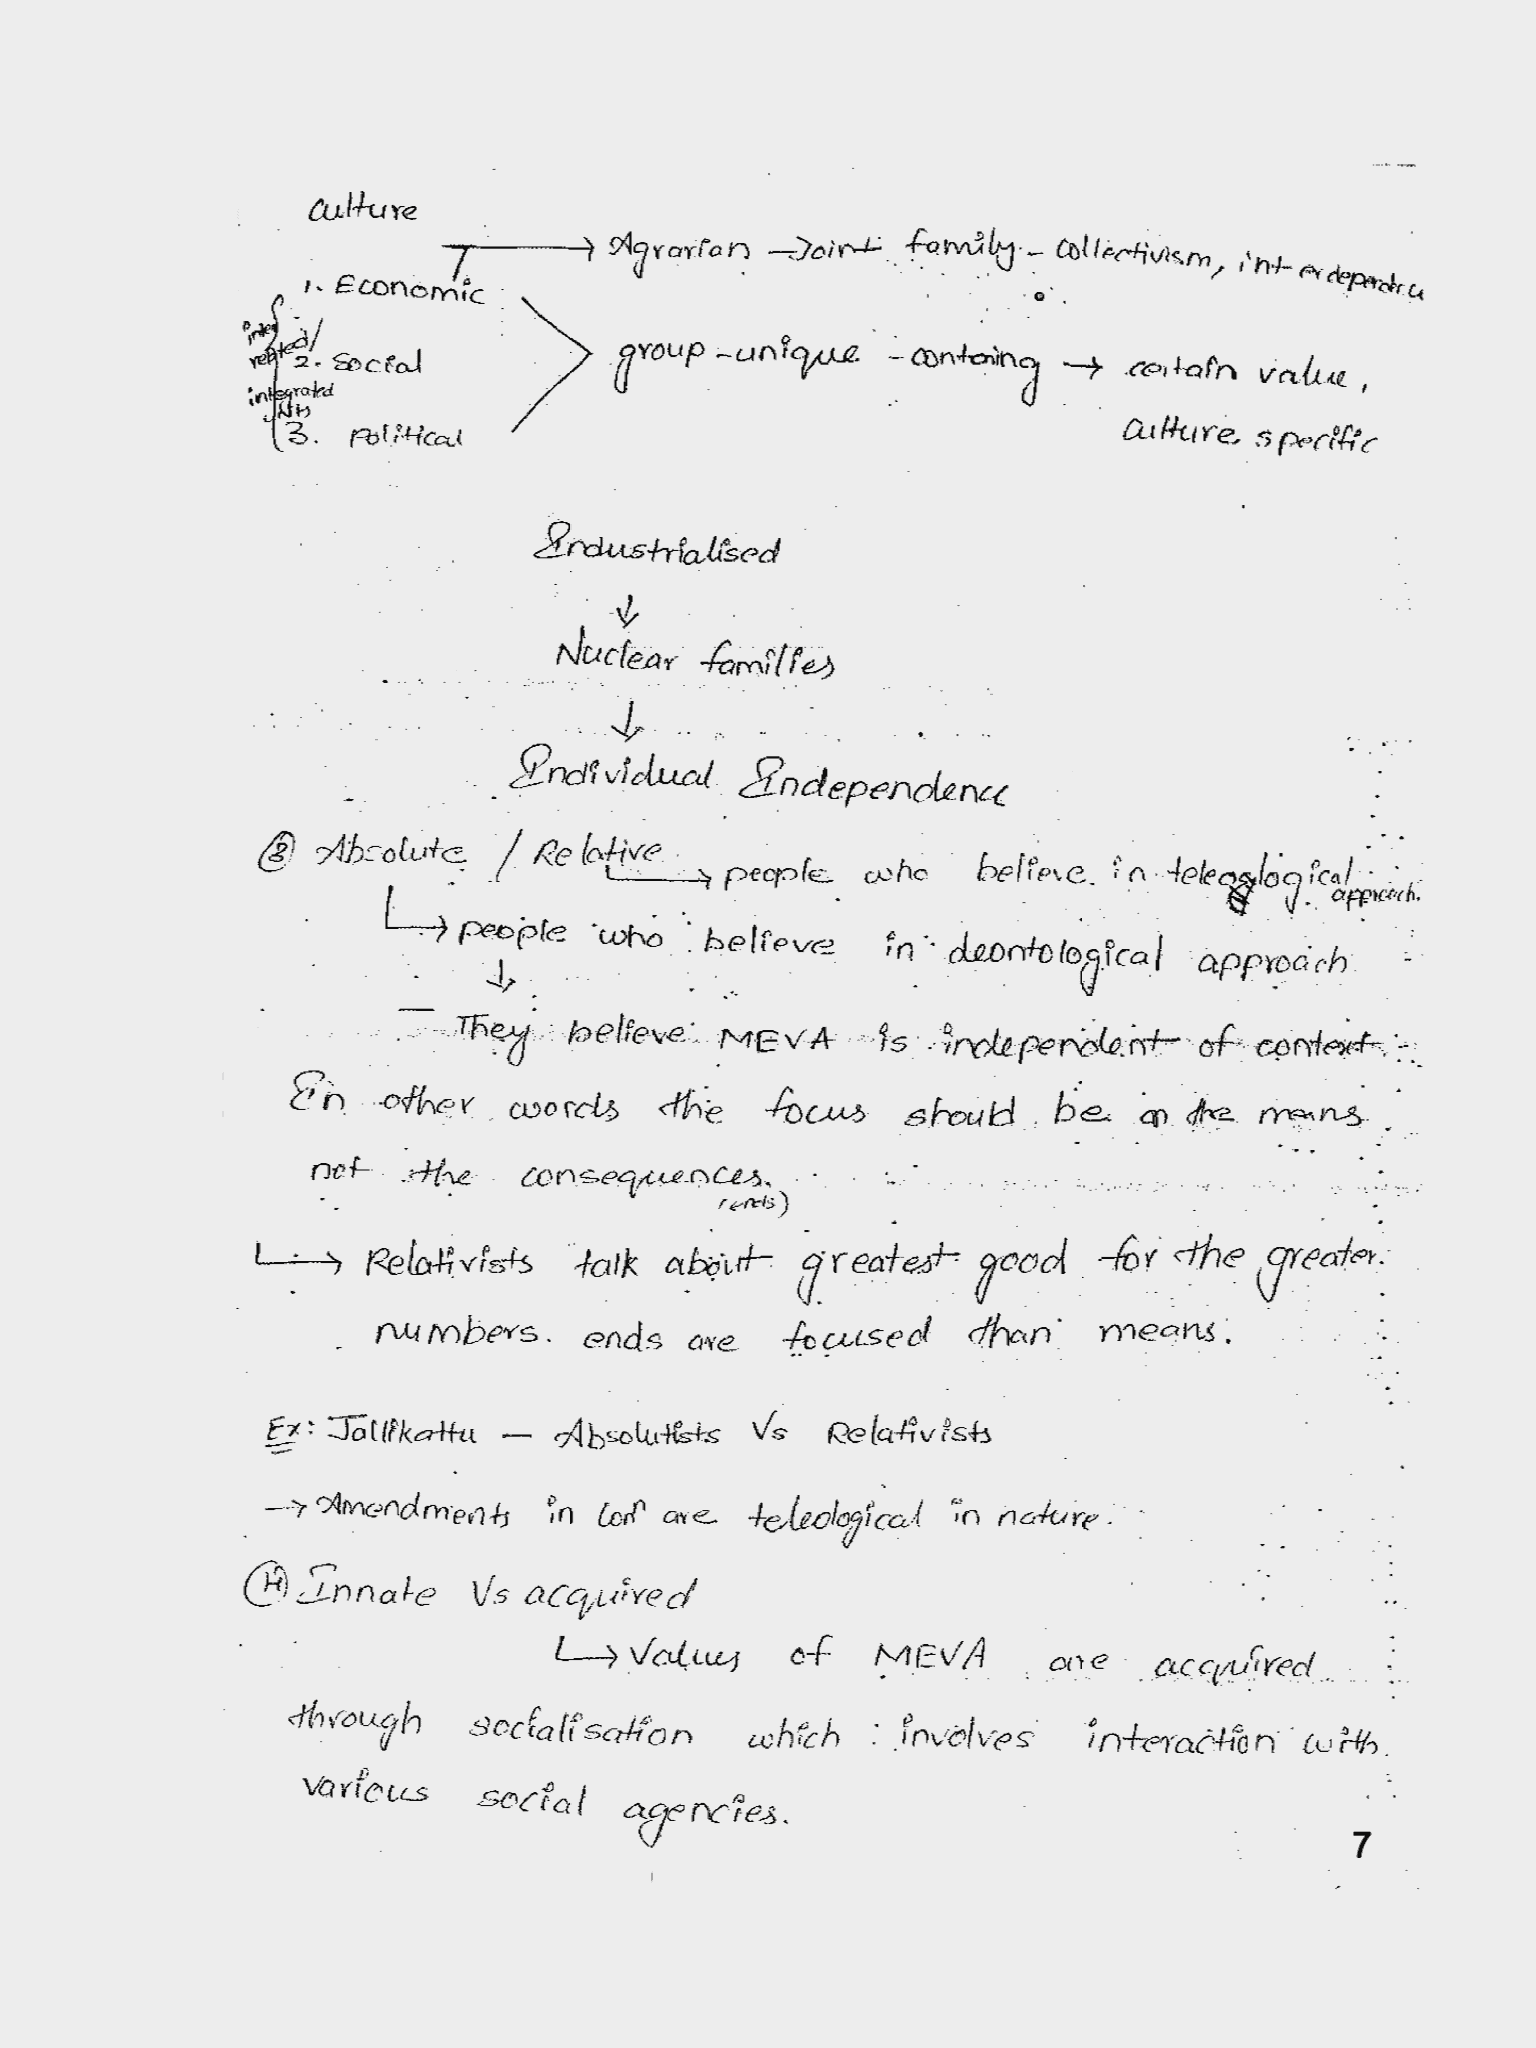 Culture
→ Agrarian - Joint family - Collectivism, interdependence
1. Economic
inter related/
2. Social
group - unique - containing → certain value,
integrated
3. Political
culture specific
Industrialised
↓
Nuclear families
↓
Individual Independence
③ Absolute / Relative
→ people who believe in teleological approach.
→ people who believe in deontological approach
↓
- They believe MEVA is independent of context
In other words the focus should be on the means
not the consequences.
(ends)
→ Relativists talk about greatest good for the greater
numbers. ends are focused than means.
Ex: Jallikattu - Absolutists Vs Relativists
→ Amendments in Conⁿ are teleological in nature.
④ Innate Vs acquired
→ Values of MEVA are acquired
through socialisation which involves interaction with
various social agencies.
7